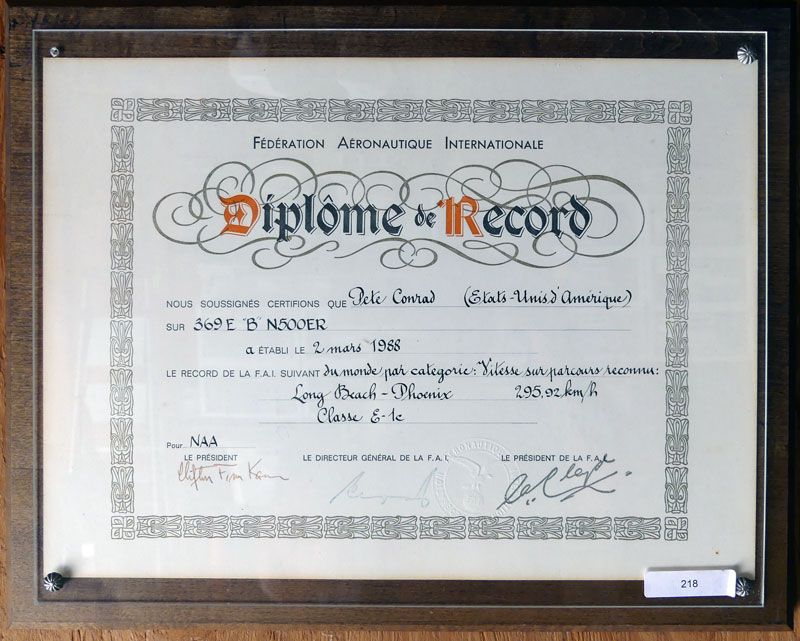 FÉDÉRATION AÉRONAUTIQUE INTERNATIONALE
Diplôme de Record
NOUS SOUSSIGNÉS CERTIFIONS QUE Pete Conrad (Etats-Unis d'Amérique)
SUR 369E "B" N500ER
a ÉTABLI LE 2 mars 1988
LE RECORD DE LA F.A.I. SUIVANT du monde par categorie: Vitesse sur parcours reconnu:
Long Beach - Phoenix 295,92 km/h
Classe E-1c
Pour NAA
LE PRÉSIDENT LE DIRECTEUR GÉNÉRAL DE LA F.A.I. LE PRÉSIDENT DE LA F.A.I.
218